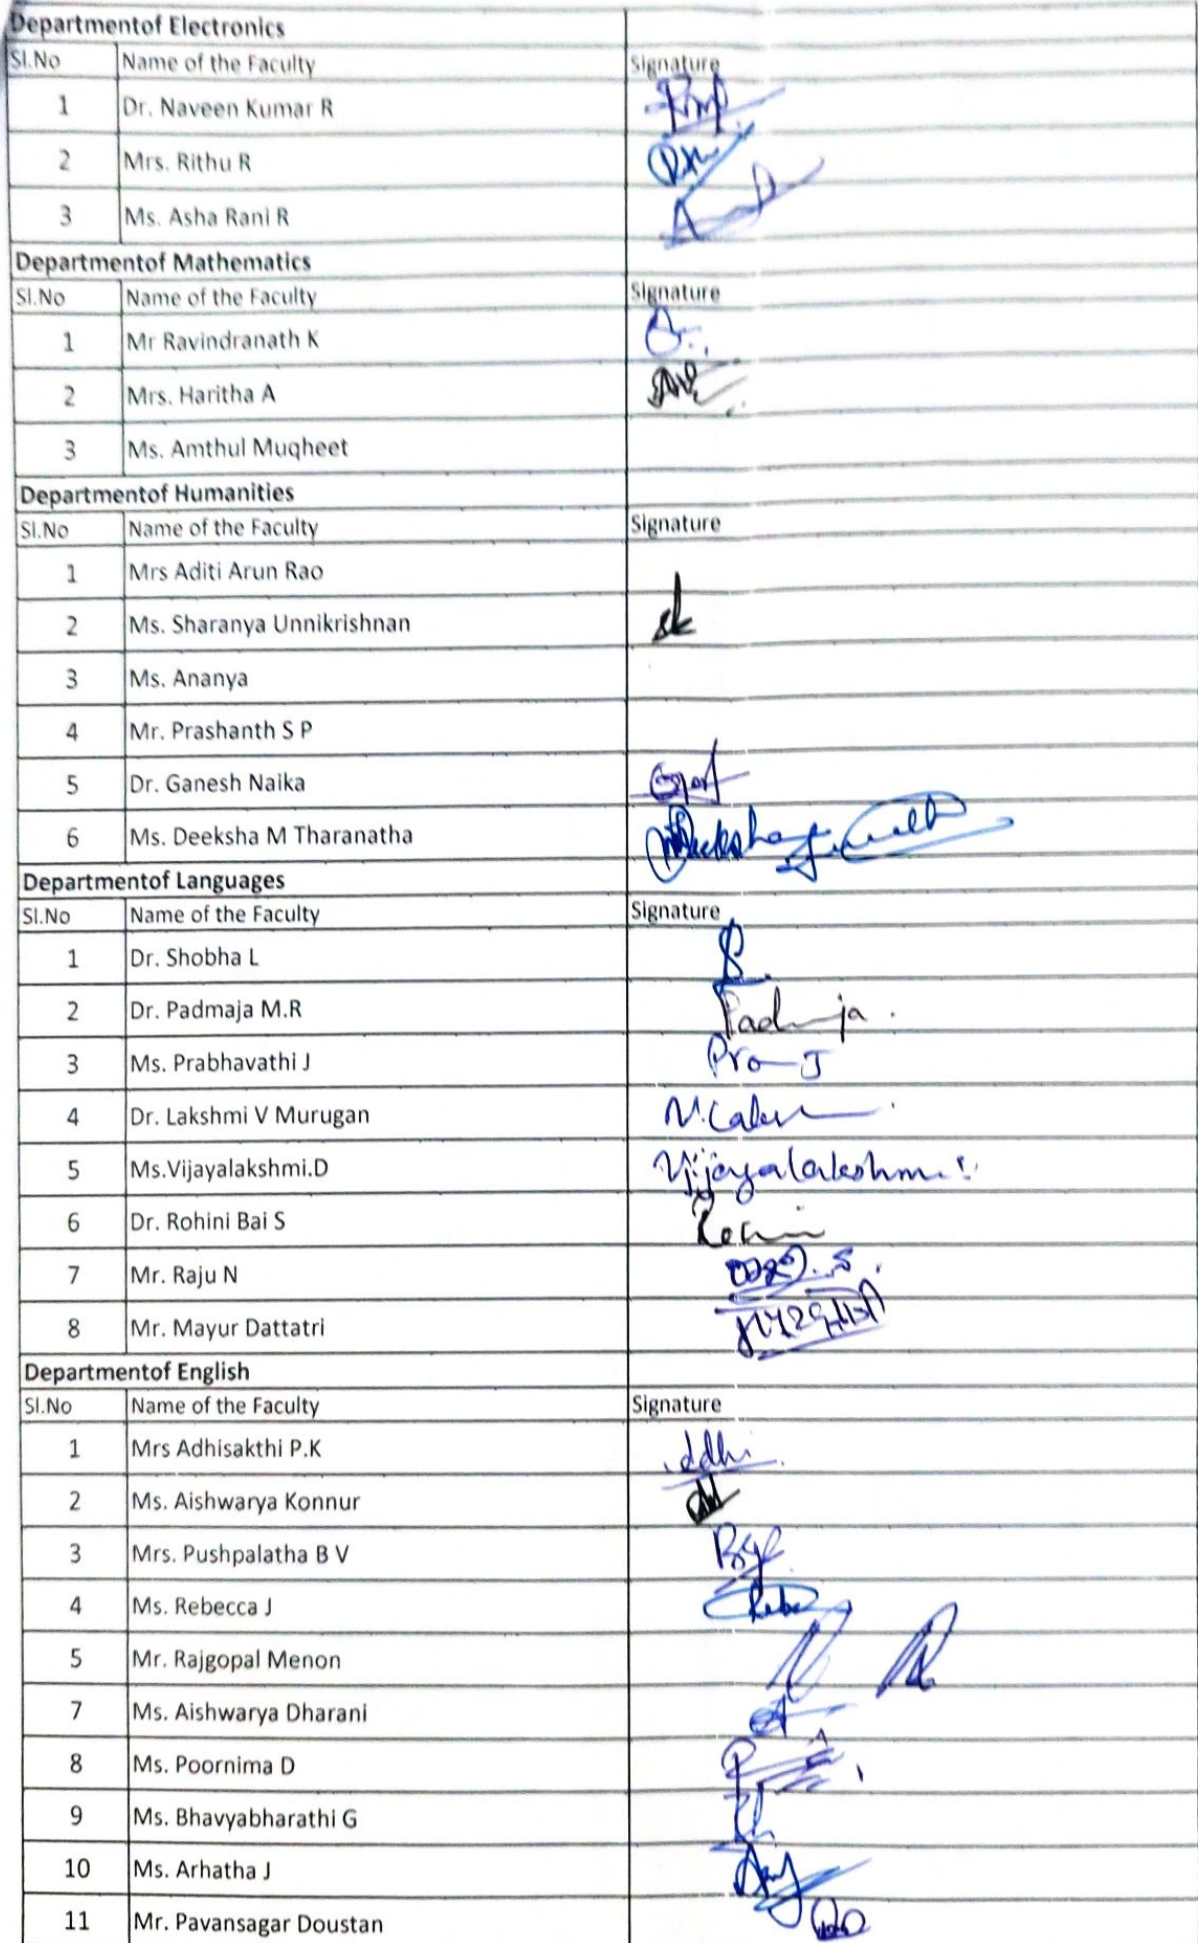 Departmentof Electronics
Sl.No Name of the Faculty Signature
1 Dr. Naveen Kumar R
2 Mrs. Rithu R
3 Ms. Asha Rani R
Departmentof Mathematics
Sl.No Name of the Faculty Signature
1 Mr Ravindranath K
2 Mrs. Haritha A
3 Ms. Amthul Muqheet
Departmentof Humanities
Sl.No Name of the Faculty Signature
1 Mrs Aditi Arun Rao
2 Ms. Sharanya Unnikrishnan
3 Ms. Ananya
4 Mr. Prashanth S P
5 Dr. Ganesh Naika
6 Ms. Deeksha M Tharanatha
Departmentof Languages
Sl.No Name of the Faculty Signature
1 Dr. Shobha L
2 Dr. Padmaja M.R
3 Ms. Prabhavathi J
4 Dr. Lakshmi V Murugan
5 Ms.Vijayalakshmi.D Vijayalakshmi
6 Dr. Rohini Bai S
7 Mr. Raju N
8 Mr. Mayur Dattatri
Departmentof English
Sl.No Name of the Faculty Signature
1 Mrs Adhisakthi P.K
2 Ms. Aishwarya Konnur
3 Mrs. Pushpalatha B V
4 Ms. Rebecca J
5 Mr. Rajgopal Menon
7 Ms. Aishwarya Dharani
8 Ms. Poornima D
9 Ms. Bhavyabharathi G
10 Ms. Arhatha J
11 Mr. Pavansagar Doustan